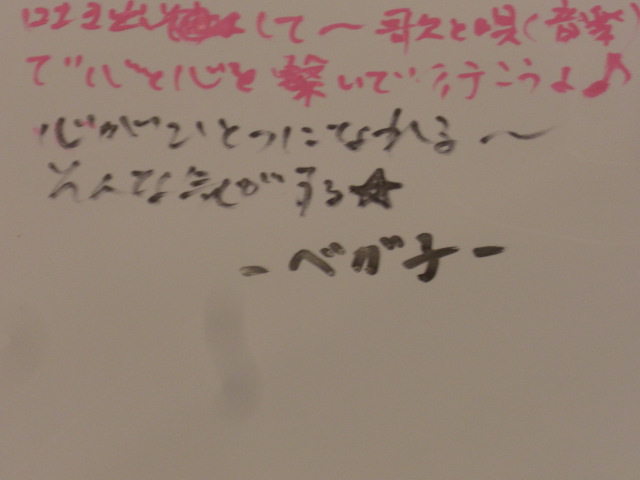 して〜歌と唄(音楽)
で心と心を繋いで行こうよ♪
心がひとつになれる〜
そんな気がする★
-ベガ子-